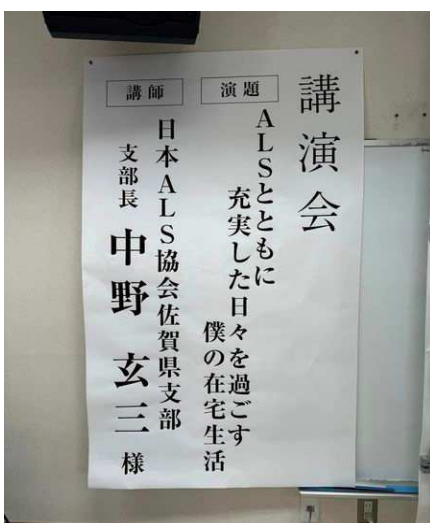 講演会
演題
ALSとともに
充実した日々を過ごす
僕の在宅生活
講師
日本ALS協会佐賀県支部
支部長 中野 玄三 様